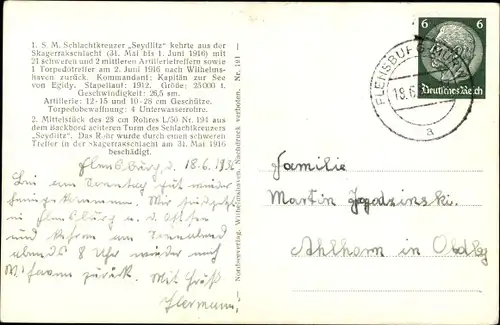 1. S. M. Schlachtkreuzer „Seydlitz" kehrte aus der
Skagerrakschlacht (31. Mai bis 1. Juni 1916) mit
21 schweren und 2 mittleren Artillerietreffern sowie
1 Torpedotreffer am 2. Juni 1916 nach Wilhelms-
haven zurück. Kommandant: Kapitän zur See
von Egidy. Stapellauf: 1912. Größe: 25000 t.
Geschwindigkeit: 26,5 sm.
Artillerie: 12-15 und 10-28 cm Geschütze.
Torpedobewaffnung: 4 Unterwasserrohre.
2. Mittelstück des 28 cm Rohres L/50 Nr. 194 aus
dem Backbord achteren Turm des Schlachtkreuzers
„Seydlitz". Das Rohr wurde durch einen schweren
Treffer in der Skagerrakschlacht am 31. Mai 1916
beschädigt.
Flensburg, d. 18.6.1936
Bin am Sonntag gut wieder
in Flensburg a. d. Ostsee
und
abends 8 Uhr wieder nach
W'haven zurück. Mit Gruß
Hermann!
Nordseeverlag, Wilhelmshaven. Nachdruck verboten. Nr. 181
6 6
Deutsches Reich
FLENSBURG-MÜRWIK
18.6.
a
Familie
Martin Jgodzinski.
Ahlhorn in Oldbg